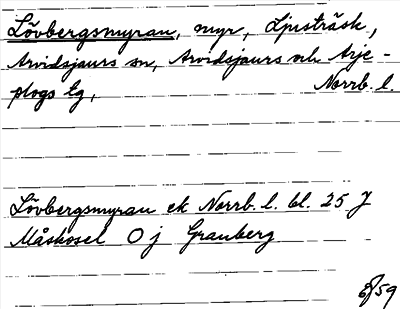 Lövbergsmyran, myr, Ljusträsk,
Arvidsjaurs sn, Arvidsjaurs och Arje-
plogs tg, Norrb. l.
Lövbergsmyran ek Norrb. l. bl. 25 J
Måskosel O j Granberg
59